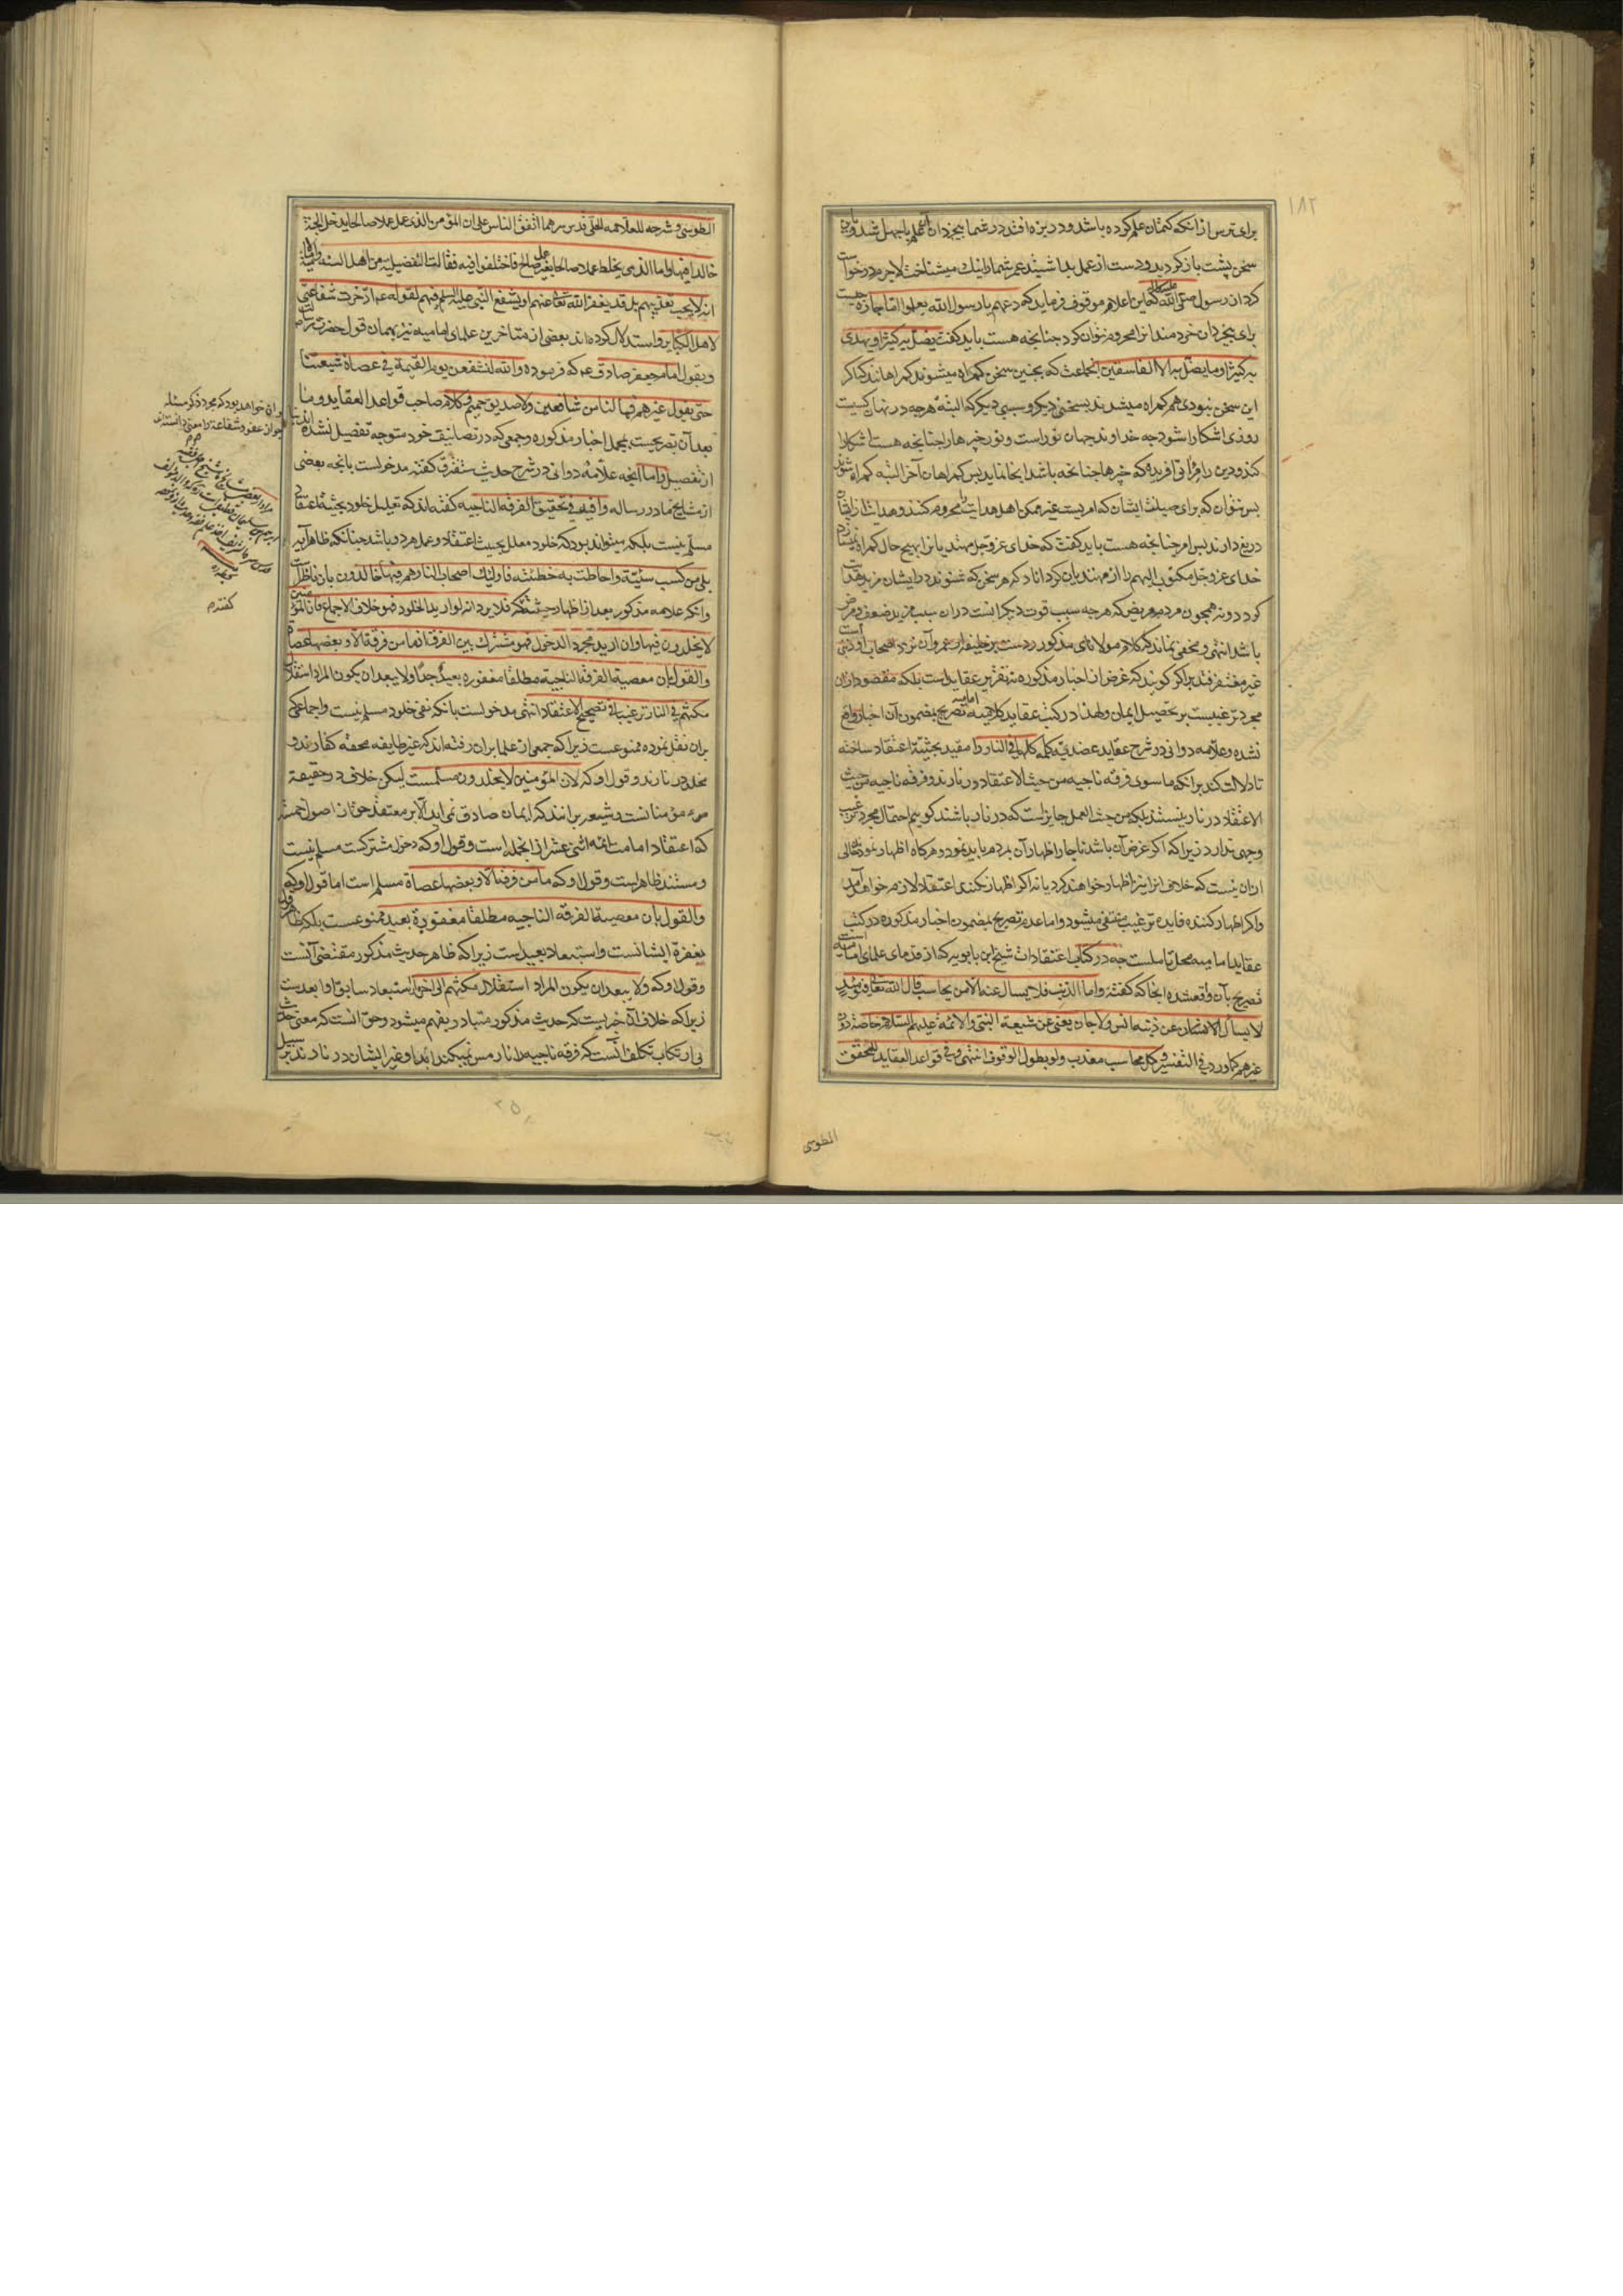 ١٨٢
برای ترس از انکه کتمان علم کرده باشد و در بزه افتد در شما بیخردان
سخن پشت باز کردید و دست از عمل بداشتید عمر شمارا نیک میشناخت لاجرم درخواست
کرد از رسول صلی الله علیه که این اعلام موقوف فرماید که دعهم یا رسول الله یعملوا اما چاره چیست
برای بیخردان خردمندانرا محروم نتوان کرد چنانچه هست باید گفت یضل به کثیرا و یهدی
به کثیرا و ما یضل به الا الفاسقین انجماعت که بچنین سخن کمراه میشوند کمراهانند که اکر
این سخن نبودی هم کمراه میشدند بسخنی دیکر و سببی دیکر که البته هرچه در نهان کسیست
روزی اشکارا شود چه خداوند جهان نوراست و نور چیزهارا چنانچه هست اشکارا
کند و دین را برای آن آفریده که چیزها چنانچه باشد انجا نماید پس کمراهان آخر البته کمراه شوند
پس نتوان که برای صیانت ایشان که امریست غیر ممکن اهل هدایت را محروم کنند و هدایت از ایشان
دریغ دارند پس امر چنانچه هست باید گفت که خدای عز و جل مهتدیانرا بهیچ حال کمراه نکند
خدای عز و جل مکتوب الیهم را از مهتدیان کرداناد که هر سخن که شنوند در ایشان مزید هدایت
کردد و نه همچون مردم مریض که هرچه سبب قوت دیکرانست در ان سبب مزید ضعف و مرض
باشد انتهی و مخفی نماند که کلام مولانای مذکور ردست بر خلیفه عمر و آن نزد اصحاب او ذنبی است
غیر مغتفر فتدبر اکر کویند که غرض از اخبار مذکوره نه تقریر عقایداست بلکه مقصود ازان
مجرد ترغیبست بر تحصیل ایمان و لهذا در کتب عقاید کلامیه امامیه تصریح بمضمون آن اخبار واقع
نشده و علامه دوانی در شرح عقاید عضدیه کلمه کلها فی النار را مقید بحیثیة اعتقاد ساخته
تا دلالت کند برانکه ما سوی فرقه ناجیه من حیث الاعتقاد در نارند و فرقه ناجیه من حیث
الاعتقاد در نار نیستند بلکه من حیث العمل جایزاست که در نار باشند کوییم احتمال مجرد ترغیب
وجهی ندارد زیرا که اکر غرض آن باشد ناچار اظهار آن بمردم باید نمود و هرکاه اظهار نمودند خالی
ازان نیست که خلاف انرا نیز اظهار خواهند کرد یا نه اکر اظهار نکنند اعتقاد لازم خواهد آمد
واکر اظهار کنند فایده ترغیب منتفی میشود و اما عدم تصریح بمضمون اخبار مذکوره در کتب
عقاید امامیه محل تاملست چه در کتاب اعتقادات شیخ ابن بابویه که از قدمای علمای امامیه است
تصریح بآن واقع شده انجا که گفته و اما الذنب فلا یسأل عنه الا من یحاسب قال الله تعالی فیومئذ
لا یسأل عن ذنبه انس ولا جان یعنی عن شیعة النبی والائمة علیهم السلام خاصة دون
غیرهم کما ورد فی التفسیر و کل محاسب معذب ولو بطول الوقوف انتهی و فی قواعد العقاید للمحقق
الطوسی
الطوسی و شرحه للعلامه الحلی قدس سرهما اتفق الناس علی ان المؤمن الذی عمل عملا صالحا یدخل الجنة
خالدا فیها واما الذی یخلط عملا صالحا بغیر صالح فاختلفوا فیه فقالت التفضیلیة من اهل السنة
انه لا یجب تعذیبهم بل قد یغفر الله تعالی عنهم او یشفع النبی علیه السلم فیهم لقوله ادخرت شفاعتی
لاهل الکبایر واستدلال کرده اند بعضی از متاخرین علمای امامیه نیز بهمان قول حضرت
و بقول امام جعفر صادق ع که فرموده والله لنشفعن یوم القیمة فی عصاة شیعتنا
حتی یقول غیرهم فما لنا من شافعین ولا صدیق حمیم و کلام صاحب قواعد العقاید و ما
بعد آن تصریحیست بمجمل اخبار مذکوره و جمعی که در تصانیف خود متوجه تفصیل نشده اند
از تفصیل و اما آنچه علامه دوانی در شرح حدیث ستفرق گفته مدخولست بانچه بعضی
از مشایخ ما در رساله وافیه فی تحقیق الفرقه الناجیه گفته اند که تعلیل خلود بحیثیة اعتقاد
مسلم نیست بلکه میتواند بود که خلود معلل بحیثیت اعتقاد و عمل هر دو باشد چنانکه ظاهر آیه
بلی من کسب سیئة واحاطت به خطیئته فاولئک اصحاب النار هم فیها خالدون بان ناظر است
وانکه علامه مذکور بعد از اظهار حیثیت گفته فلا یرد انه لو ارید الخلود فهو خلاف الاجماع فان المؤمنین
لا یخلدون فیها وان ارید مجرد الدخول فهو مشترک بین الفرق اذ ما من فرقة الا وبعضها عصاة
والقول بان معصیة الفرقة الناجیة مطلقا مغفوره بعید جدا ولا یبعد ان یکون المراد استقلال
مکثهم فی النار ترغیبا فی تصحیح الاعتقاد انتهی مدخولست بانکه نفی خلود مسلم نیست و اجماعی که
بران نقل نموده ممنوعست زیرا که جمعی از علما بران رفته اند که غیر طایفه محقه کفارند و
مخلد در نارند و قول او که لان المؤمنین لا یخلدون مسلمست لیکن خلاف در حقیقة
مؤمنانست و شیعه برانند که ایمان صادق نمی آید الا بر معتقد حق از اصول خمسه
که اعتقاد امامت ائمه اثنی عشر از انجمله است و قول او که دخول مشترکست مسلم نیست
و مستند ظاهراست و قول او که ما من فرقة الا وبعضها عصاة مسلم است اما قول او که
والقول بان معصیة الفرقه الناجیه مطلقا مغفورة بعید ممنوعست بلکه ظاهر
مغفرة ایشانست و استبعاد بعیداست زیرا که ظاهر حدیث مذکور مقتضی آنست
وقول او که ولا یبعد ان یکون المراد استقلال مکثهم الی آخره استبعاد سابق او ابعدست
زیرا که خلاف آن چیزیست که حدیث مذکور متبادر بفهم میشود و حق انست که معنی حدیث
بی ارتکاب تکلف انست که فرقه ناجیه را نار مس نمیکند ابدا و غیر ایشان در نارند بر سبیل
خواهد بود که مجرد ذکر مسئله
جواز عفو و شفاعة را معنی دانستند